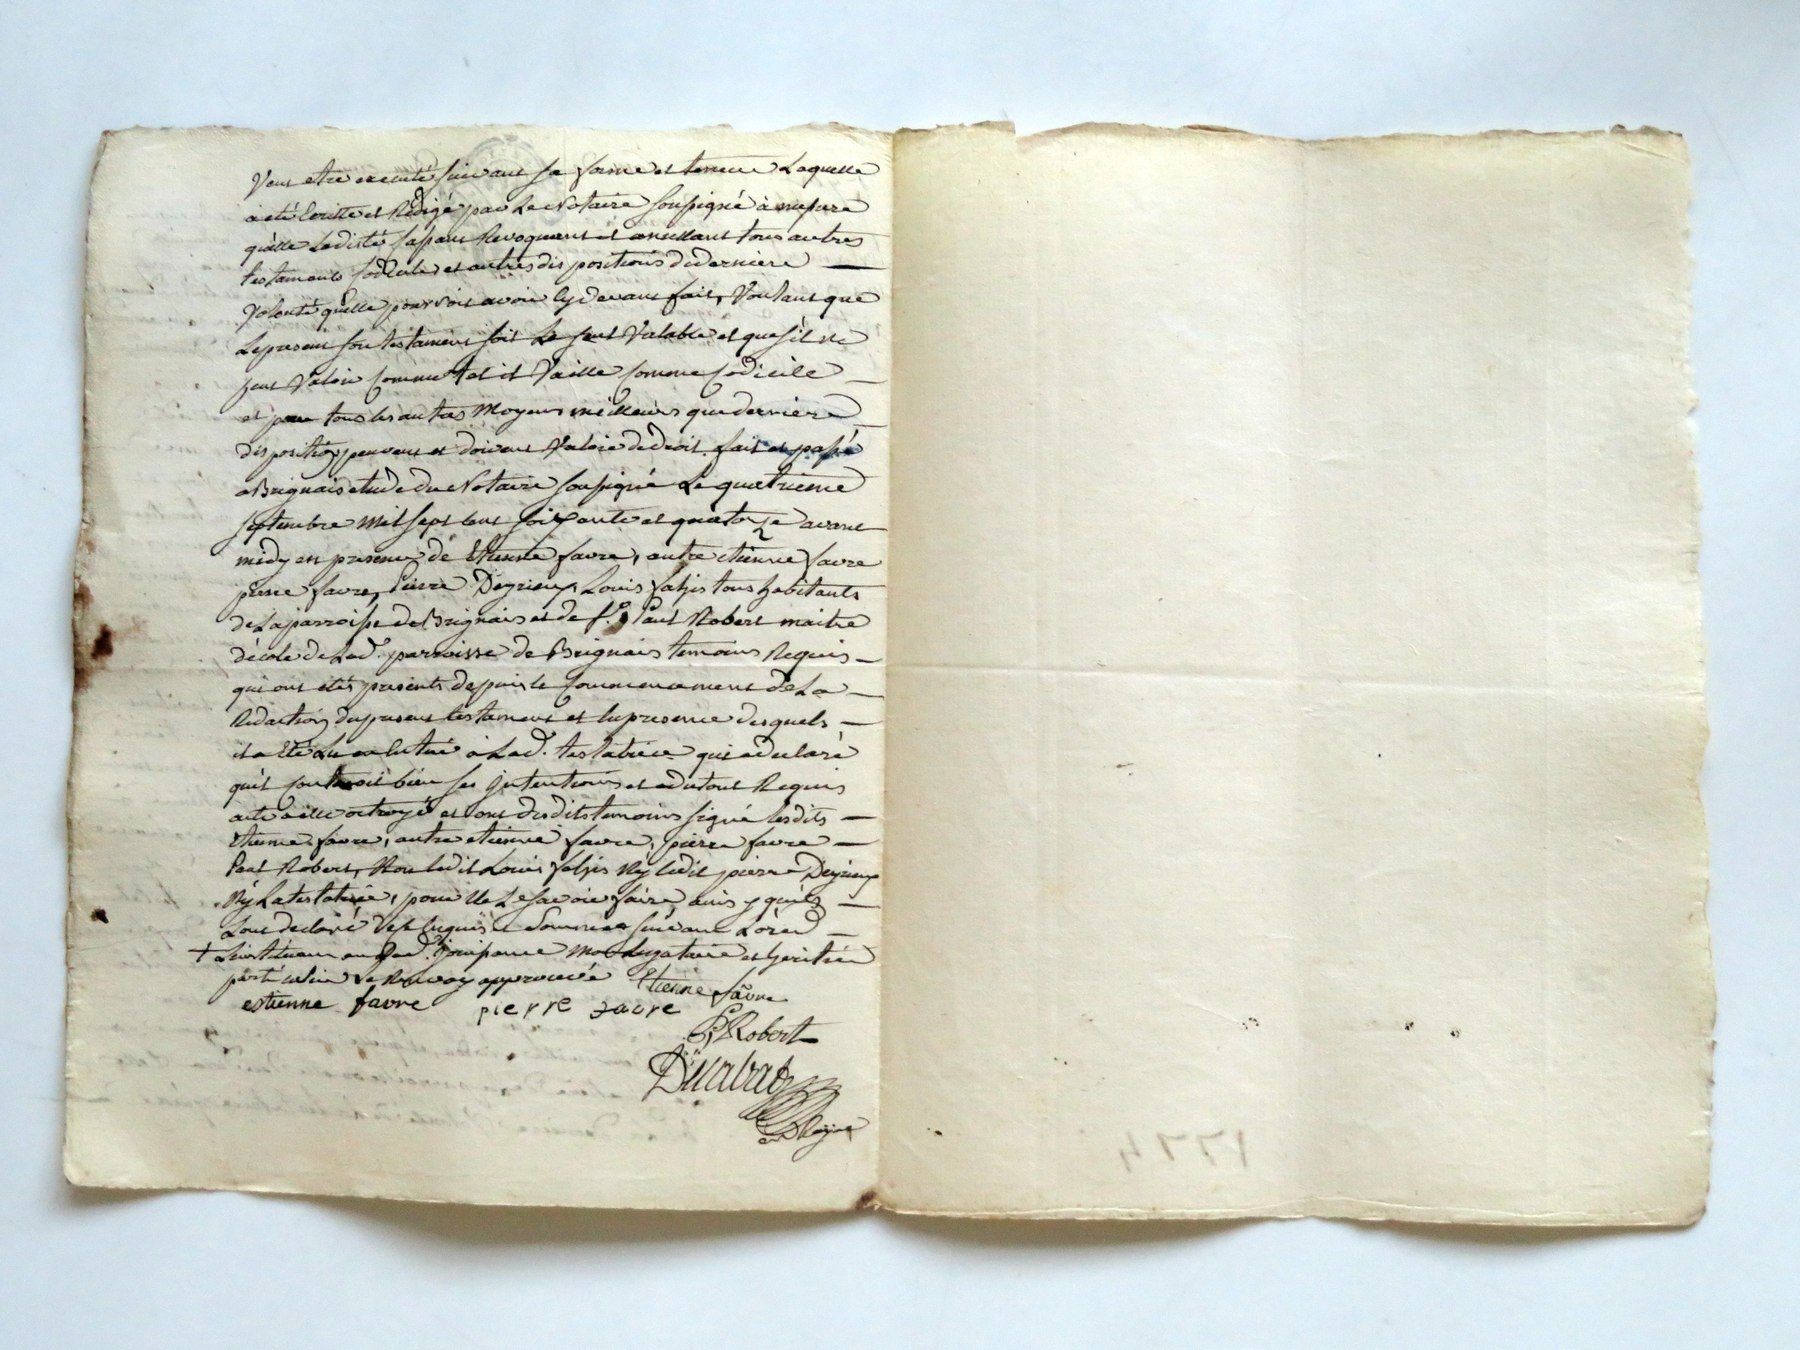 Veut etre executé suivant sa forme et teneur Laquelle
a été Ecritte et Rédigé par Le Notaire soussigné à mesure
quelle La dicté Cassant Revoquant et anullant tous autres
testaments Codicile et autres dispositions de derniere
Volonté quelle pourroit avoir cy devant fait, Voulant que
Le present son testament soit Le seul Valable et que s'il ne
peut Valoir Comme tel il Vaille Comme Codicile
et par tous les autres Moyens meilleurs que derniere
disposition peuvent et doivent Valoir de droit. fait et passé
a Brignais etude du Notaire soussigné Le quatrieme
septembre mil sept cent soixante et quatorze avant
midy en presence de Etienne favre, autre etienne favre
pierre favre, Pierre Deyrieux Louis tous habitants
de La parroisse de Brignais et de sr. Paul Robert maitre
d'école de Lad. parroisse de Brignais temoins Requis
qui ont étés presents depuis le Commencement de La
Redaction du present testament et en presence desquels
il a Eté Lu en Entier à Lad. testatrice qui a declaré
qu'il contenoit bien ses Intentions et du tout Requis
acte a elle octroyé et ont desdits temoins signé lesdits
Etienne favre, autre etienne favre, pierre favre
Paul Robert, Non ledit Louis Ny ledit pierre Deyrieux
Ny La testatrice, pour ne Le savoir faire ainsy quils
L'ont declaré de ce Enquis et Sommés suivant L'ord.
+ L'instituant en Lad. Jouissance Mo Legataire et heritier
particulier Le Renvoy approuvé Etienne favre
estienne favre pierre favre
P Robert
Ducabat
1774